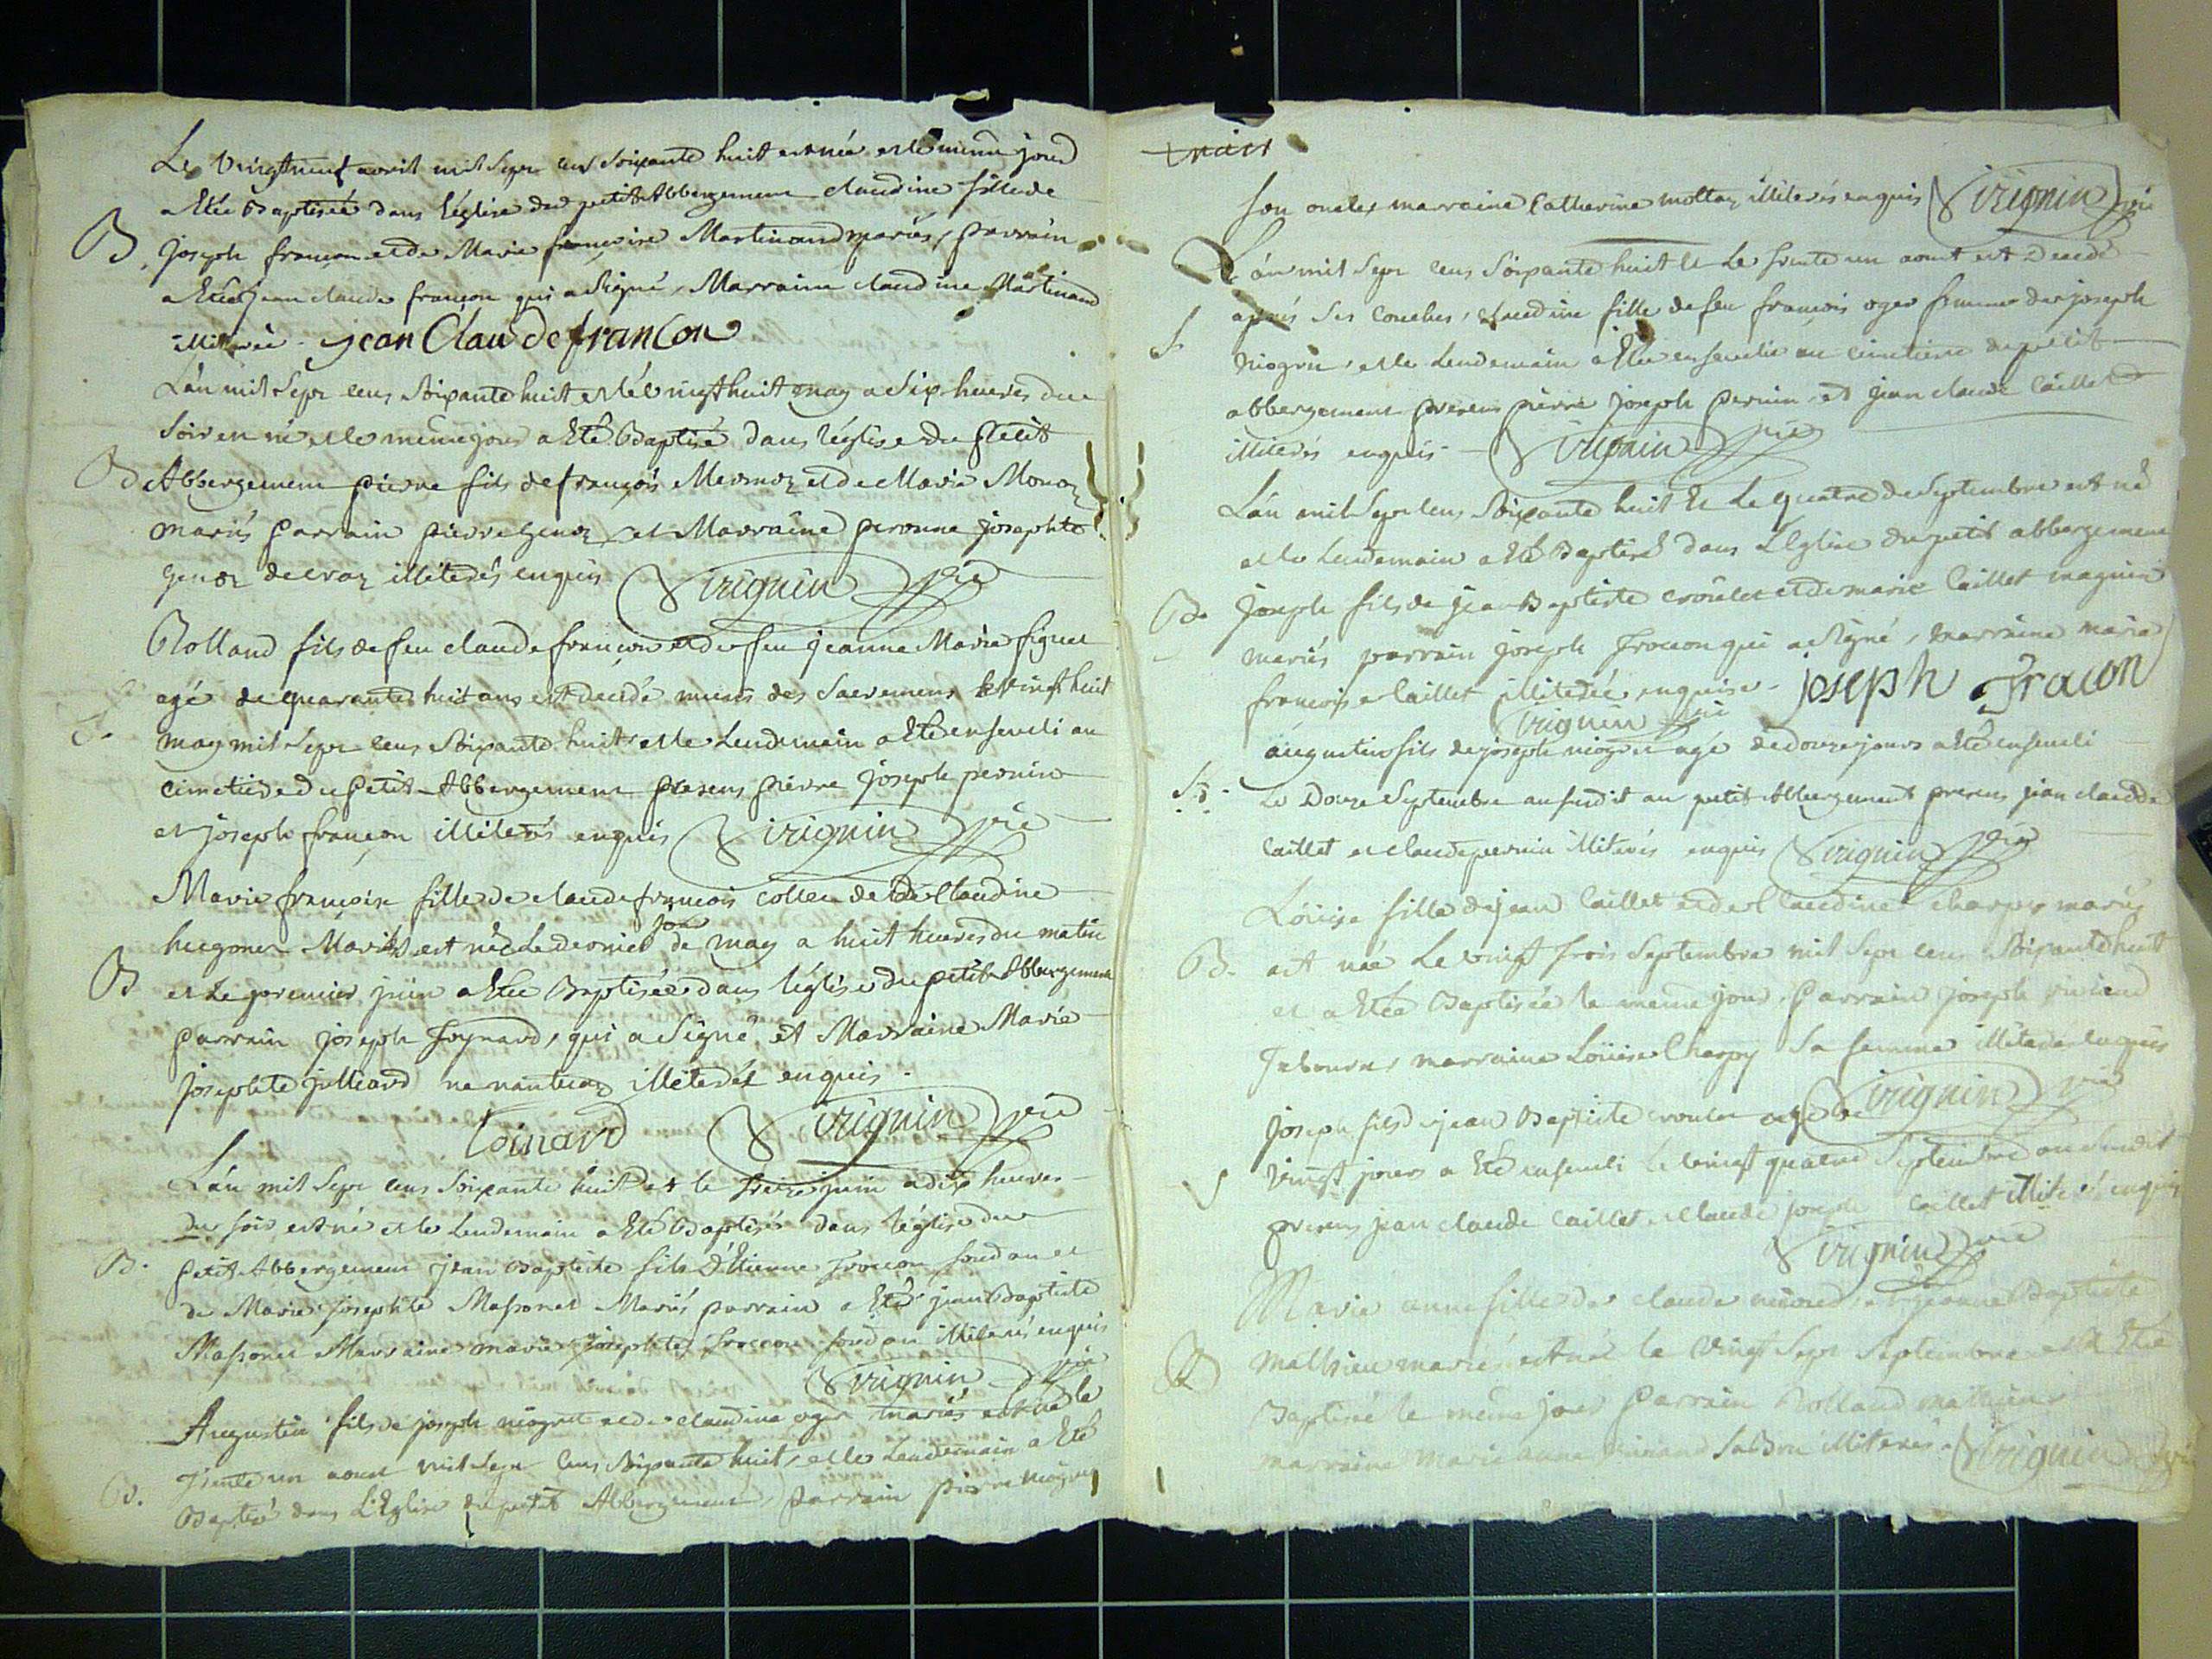 Le vingtneuf avril mil sept cens soixante huit est née et le meme jour
a Etée Baptisée dans l'église du petit Abbergement claudine fille de
B. joseph françon et de Marie françoise Martinand mariés, parrain
a Etée jean claude françon qui a signé, Marraine claudine Martinand
illiterée. jean Claude francon
L'an mil sept cens soixante huit et le vingt huit may a six heures du
soir est né et le même jour a Eté Baptisé dans l'église du petit
B. Abbergement pierre fils de françois Mermoz et de Marie Monoz
mariés parrain pierre genoz et Marraine peronne josephte
genoz de craz illiterés enquis Virignin vic
Rolland fils de feu claude françon et de feu jeanne Marie figuet
agé de quarante huit ans est decedé munis des sacremens le vingt huit
S. may mil sept cens soixante huit et le Lendemain a Eté enseveli au
cimetiere du petit Abbergement presens pierre joseph pernin
et joseph françon illiterés enquis Virignin vic
Marie françoise fille de claude françois collet de et de Claudine
hugonet Mariés est née Le dernier jour de may a huit heures du matin
B et le premier juin a Etée Baptisée dans l'église du petit Abbergement
parrain joseph Toynard, qui a signé et Marraine Marie
josephte julliard illiterée enquis.
Toinard Virignin vic
L'an mil sept cens soixante huit et le treize juin a dix heures
du soir est né et le Lendemain a Eté Baptisé dans l'église du
B. petit Abbergement jean Baptiste fils d'Etienne Trocon et
de Marie josephte Massonet Mariés parrain a Eté jean Baptiste
Massonet Marraine marie josephte Troccon illiterés enquis
Virignin vic
Augustin fils de joseph niogret et de claudine oger mariés est né le
trente un aout mil sept cens soixante huit, et le Lendemain a Eté
B. Baptisé dans L'Eglise du petit Abbergement, parrain pierre niogret
son oncle, marraine Catherine mollaz illiterés enquis Virignin vic
L'an mil sept cens soixante huit et le trente un aout est decedé
après ses couches, claudine fille de feu françois oger femme de joseph
S niogret, et le Lendemain a Etée ensevelie au cimetiere du petit
abbergement presens pierre joseph pernin et jean claude Caillet
illiterés enquis - Virignin vic
L'an mil sept cens soixante huit et Le quatre de septembre est né
et le Lendemain a Eté Baptisé dans L'Eglise du petit abbergement
B. joseph fils de jean Baptiste croulet et de marie Caillet magnin
mariés parrain joseph Trocon qui a signé, marraine marie
françoise Caillet illiterée enquise - joseph Tracon
Virignin vic
augustin fils de joseph niogret agé de douze jours a Eté enseveli
S. Le Douze Septembre au susdit au petit Abbergement presens jean claude
Caillet et claude pernin illiterés enquis Virignin vic
Loüise fille de jean Caillet et de Claudine charpy mariés
B. est née Le vingt trois Septembre mil sept cens soixante huit
et a Etée Baptisée le meme jour. parrain joseph
marraine Loüise Charpy sa femme illiterés enquis
joseph fils de jean Baptiste croulet agé de Virignin vic
S vingt jours a Eté enseveli Le vingt quatre Septembre au susdit
presens jean claude Caillet et claude joseph Caillet illiterés enquis
Virignin vic
Marie anne fille de claude et jeanne Baptiste
B Mathieu mariés est née le vingt sept septembre et a Etée
Baptisée le même jour parrain Rolland mathieu
marraine marie anne illiterés. Virignin vic